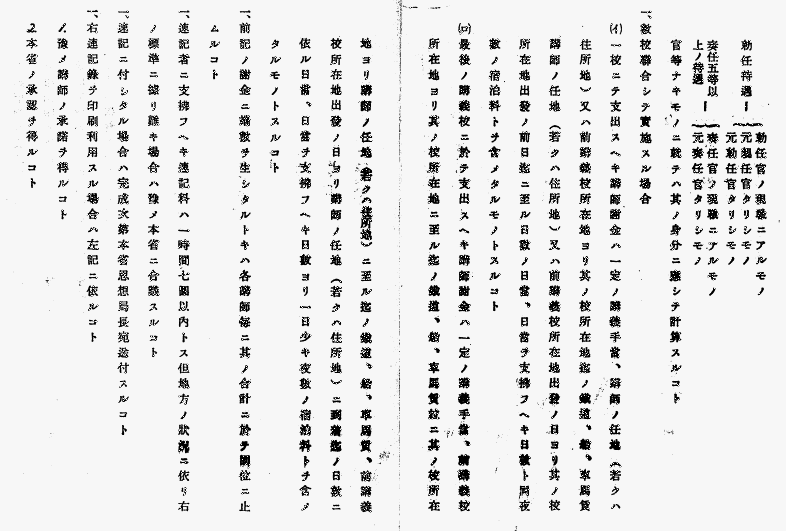 勅任待遇 ― 勅任官ノ現職ニアルモノ
元親任官タリシモノ
元勅任官タリシモノ
奏任五等以上ノ待遇 ― 奏任官ノ現職ニアルモノ
元奏任官タリシモノ
官等ナキモノニ就テハ其ノ身分ニ應シテ計算スルコト
一、數校聯合シテ實施スル場合
(イ) 一校ニテ支出スヘキ講師謝金ハ一定ノ講義手當、講師ノ任地(若クハ
住所地)又ハ前講義校所在地ヨリ其ノ校所在地迄ノ鐵道、船、車馬賃
講師ノ任地(若クハ住所地)又ハ前講義校所在地出發ノ日ヨリ其ノ校
所在地出發ノ前日迄ニ至ル日數ノ日當、日當ヲ支拂フヘキ日數ト同夜
數ノ宿泊料トヲ含メタルモノトスルコト
(ロ) 最後ノ講義校ニ於テ支出スヘキ講師謝金ハ一定ノ講義手當、前講義校
所在地ヨリ其ノ校所在地ニ至ル迄ノ鐵道、船、車馬賃竝ニ其ノ校所在
地ヨリ講師ノ任地(若クハ住所地)ニ至ル迄ノ鐵道、船、車馬賃、前講義
校所在地出發ノ日ヨリ講師ノ任地(若クハ住所地)ニ到着迄ノ日數ニ
依ル日當、日當ヲ支拂フヘキ日數ヨリ一日少キ夜數ノ宿泊料トヲ含メ
タルモノトスルコト
一、前記ノ謝金ニ端數ヲ生シタルトキハ各講師毎ニ其ノ合計ニ於テ圓位ニ止
ムルコト
一、速記者ニ支拂フヘキ速記料ハ一時間七圓以內トス但地方ノ狀況ニ依リ右
ノ標準ニ據リ難キ場合ハ豫メ本省ニ合議スルコト
一、速記ニ付シタル場合ハ完成次第本省思想局長宛送付スルコト
一、右速記錄ヲ印刷利用スル場合ハ左記ニ依ルコト
1. 豫メ講師ノ承諾ヲ得ルコト
2. 本省ノ承認ヲ得ルコト